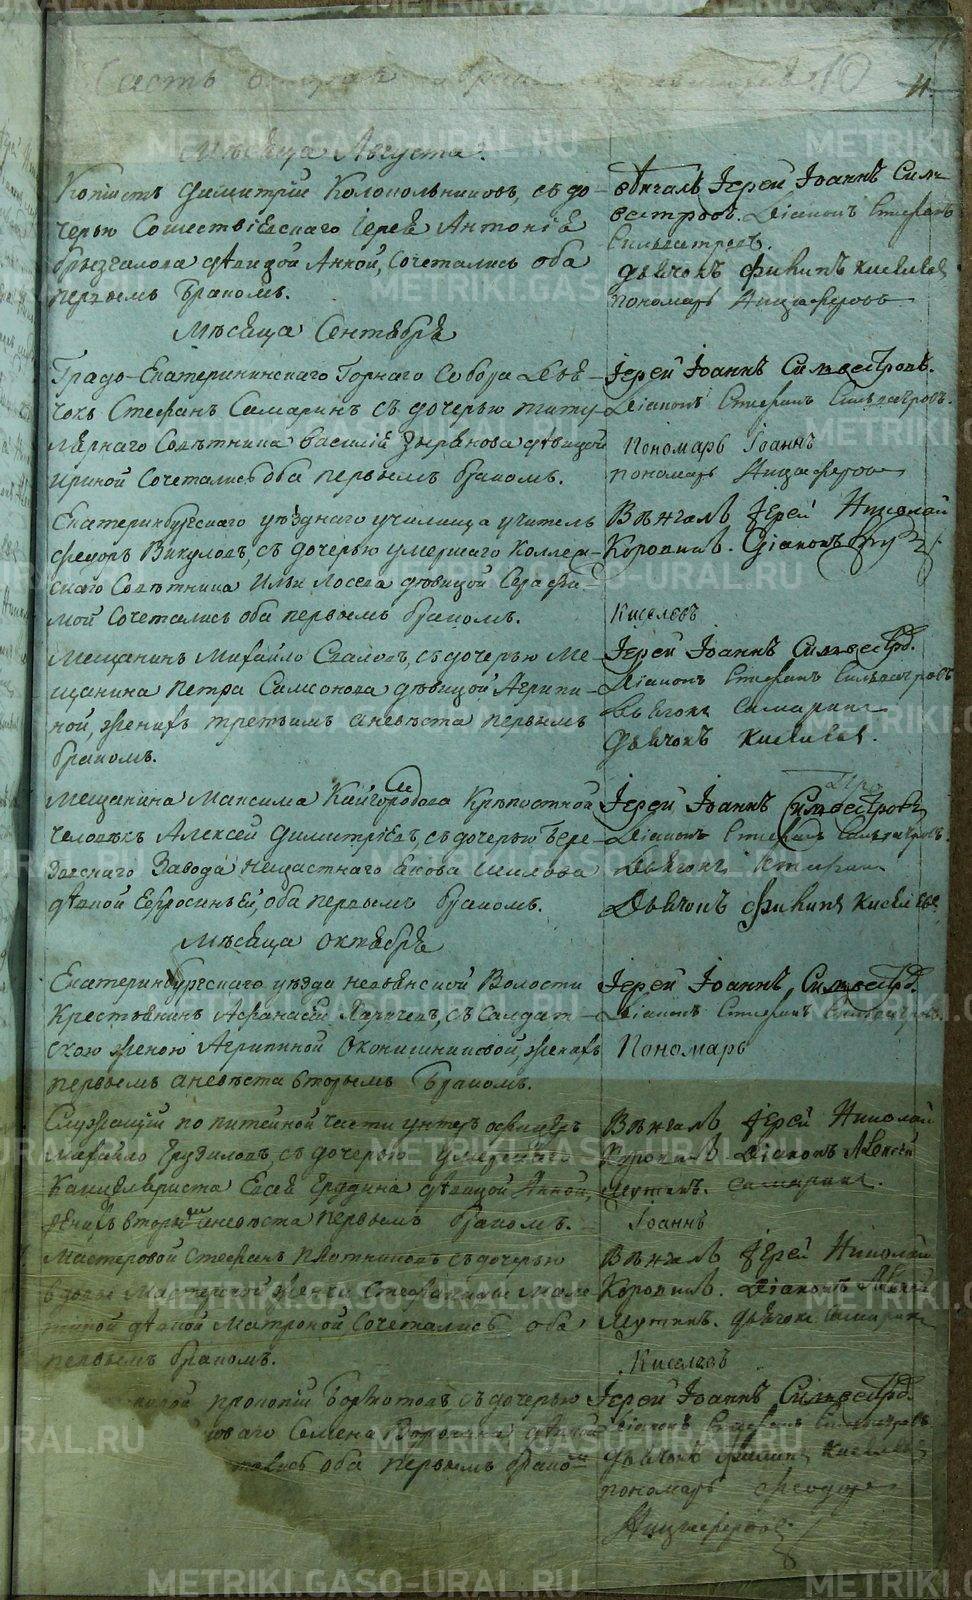 Часть вторая
10
Мѣсяца Августа.
Копіистъ Димитрій Колокольниковъ, съ до-
черью Сошествіевскаго Іерея Антонія
Брызгалова дѣвицой Анной, Сочетались оба
первымъ бракомъ.
Вѣнчалъ Іерей Іоаннъ Силь-
вестровъ. Діаконъ Стефанъ
Сильвестровъ.
Дьячокъ Филипъ Киселевъ
пономарь Ницыферовъ
Мѣсяца Сентября
Градо-Екатерининскаго Горнаго Собора Дья-
чокъ Стефанъ Самаринъ съ дочерью титу-
лярнаго Совѣтника Василія Зырянова дѣвицой
Ириной Сочетались оба первымъ бракомъ.
Іерей Іоаннъ Сильвестровъ.
Діаконъ Стефанъ Сильвестровъ.
Пономарь Іоаннъ
пономарь Ницыферовъ
Екатеринбургскаго уѣзднаго училища учитель
Федоръ Викуловъ, съ дочерью умершаго Коллеж-
скаго Совѣтника Ильи Лосева дѣвицой Серафи-
мой Сочетались оба первымъ бракомъ.
Вѣнчалъ Іерей Николай
Коровинъ. Діаконъ
Киселевъ
Мещанинъ Михайло Сваловъ, съ дочерью Ме-
щанина Петра Самсонова дѣвицой Агрипи-
ной, женихъ третьимъ а невѣста первымъ
бракомъ.
Іерей Іоаннъ Сильвестр.
Діаконъ Стефанъ Сильвестровъ
Дьячокъ Самаринъ
Дьячокъ Киселевъ.
Мещанина Максима Кайгородова Крѣпостной
человѣкъ Алексей Димитріевъ, съ дочерью Бере-
зовскаго Завода Нещастнаго Якова Шилова
дѣвкой Ефросиньей, оба первымъ бракомъ.
Іерей Іоаннъ Сильвестровъ
Діаконъ Стефанъ Сильвестровъ.
Дьячокъ Стефанъ
Дьячокъ Филипъ Киселевъ
Мѣсяца Октября
Екатеринбургскаго уѣзда Невьянской Волости
Крестьянинъ Афанасей Ларичевъ, съ Салдат-
скою женою Агрипиной Оконишниковой, женихъ
первымъ а невѣста вторымъ бракомъ.
Іерей Іоаннъ Сильвестр.
Діаконъ Стефанъ Сильвестровъ
Пономарь
Служащій по питейной части унтеръ офицеръ
Михайло Грудиловъ, съ дочерью умершаго
Канцеляриста Евсея Ерядина дѣвицой Анной,
женихъ вторымъ а невѣста первымъ бракомъ.
Вѣнчалъ Іерей Николай
Коровинъ Діаконъ Алексей
Мутинъ. Самаринъ.
Іоаннъ
Мастеровой Стефанъ Плотниковъ съ дочерью
вдовы Мастерской женки Стефаниды Маля-
тиной дѣвкой Матроной Сочетались оба
первымъ бракомъ.
Вѣнчалъ Іерей Николай
Коровинъ. Діаконъ Алексей
Мутинъ. Дьячокъ Самаринъ
Киселевъ
Прокопій съ дочерью
Семена Воронина дѣвкой
оба первымъ бракомъ
Іерей Іоаннъ Сильвестр.
Діаконъ Стефанъ Сильвестровъ
Дьячокъ Филипъ Киселевъ
пономарь Феодоръ
Ницыферовъ
METRIKI.GASO-URAL.RU